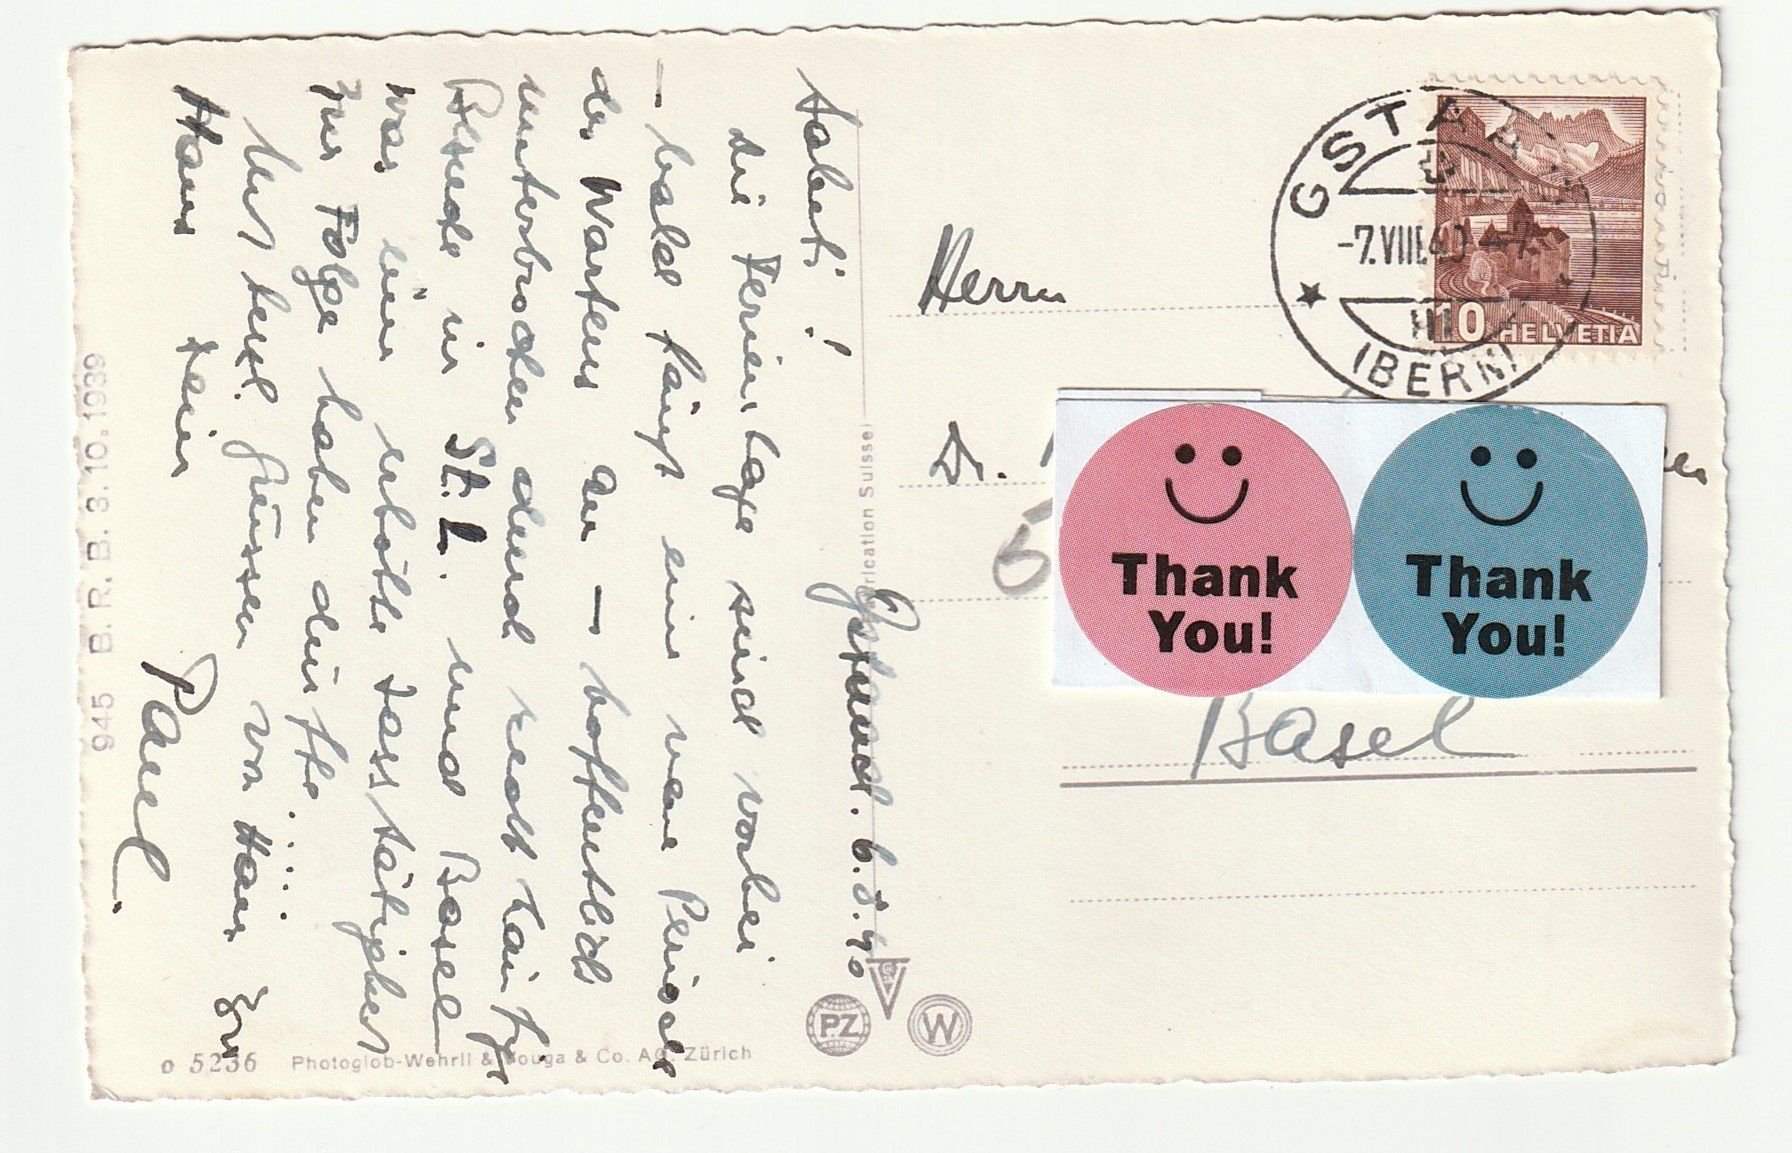 Gstaad. 6.8.40
Salueti!
Die Ferientage sind vorbei
– bald fängt eine neue Periode
des Wartens an – hoffentlich
unterbrochen durch recht häufige
Besuche in St. L. und Basel
was eine erhöhte Jasstätigkeit
zur Folge haben dürfte.
Mit herzl. Grüssen von Haus zu
Haus Dein
Paul
Herrn
Dr.
Basel
GSTAAD
-7.VIII.40
(BERN)
10 HELVETIA
Thank
You!
Thank
You!
945 B. R. B. 3. 10. 1939
Fabrication Suisse
o 5236 Photoglob-Wehrli & Vouga & Co. AG. Zürich
PZ
W